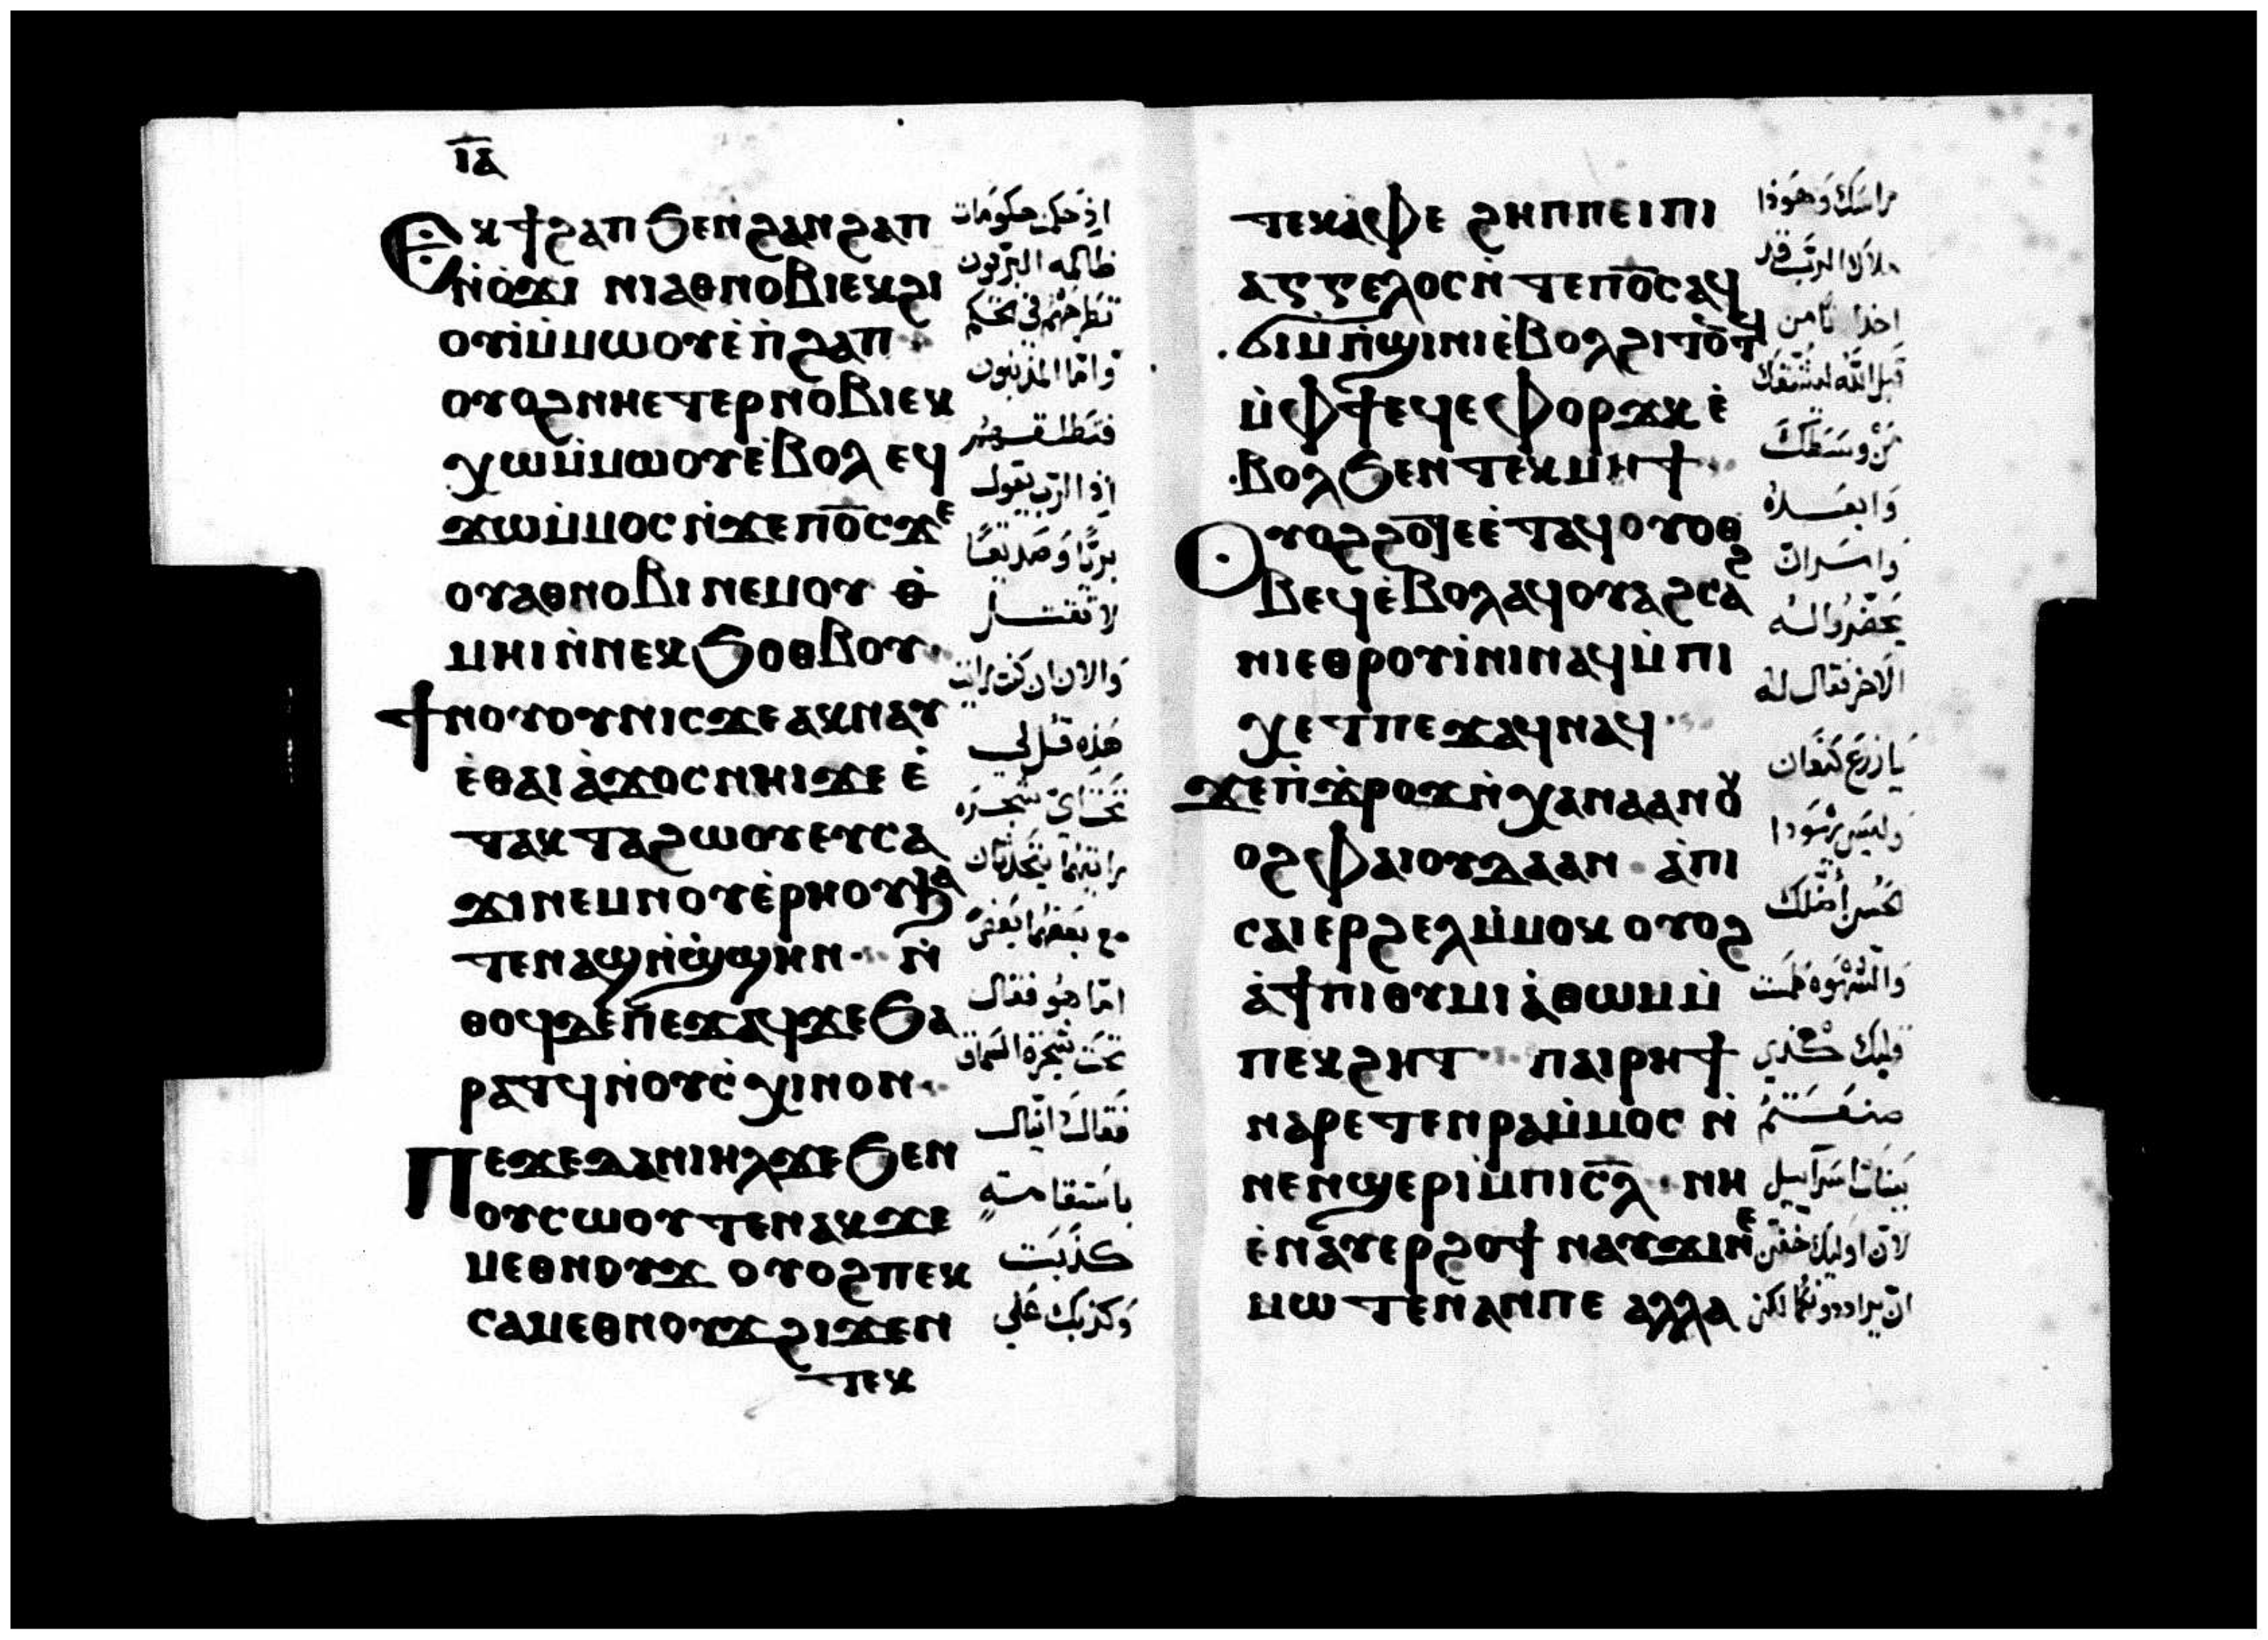 ⲓ̅ⲁ̅
Ⲉⲕϯϩⲁⲡ ϧⲉⲛϩⲁⲛϩⲁⲡ
ⲛ̀ϭ̀ⲟϫⲓ ⲛⲓⲁⲑⲛⲟⲃⲓⲉⲕϩⲓ
ⲟⲩⲓ̀ⲙ̀ⲙⲱⲟⲩⲉ̀ⲡ̀ϩⲁⲡ
ⲟⲩⲟϩⲛⲏⲉⲧⲉⲣⲛⲟⲃⲓⲉⲕ
ⲭⲱⲙ̀ⲙⲱⲟⲩⲉ̀ⲃⲟⲗ ⲉϥ
ϫⲱⲙ̀ⲙⲟⲥ ⲛ̀ϫⲉⲡⲟ̅ⲥ̅ϫⲉ
ⲟⲩⲁⲑⲛⲟⲃⲓ ⲛⲉⲙⲟⲩ ⲑ̀
ⲙⲏⲓⲛ̀ⲛⲉⲕϧⲟⲑⲃⲟⲩ·
Ϯⲛⲟⲩⲟⲩⲛⲓⲥϫⲉⲁⲕⲛⲁⲩ
ⲉ̀ⲑⲁⲓ ⲁ̀ϫⲟⲥ ⲛⲏⲓϫⲉ ⲉ̀
ⲧⲁⲕⲧⲁϩⲱⲟⲩⲉⲩⲥⲁ
ϫⲓⲛⲉⲙⲛⲟⲩⲉ̀ⲣⲏⲟⲩϧⲁ
ⲧⲉⲛⲁϣⲛ̀ϣ̀ϣⲏⲛ· ⲛ̀
ⲑⲟϥⲇⲉⲡⲉϫⲁϥϫⲉϧⲁ
ⲣⲁⲧϥⲛ̀ⲟⲩⲥ̀ⲭⲓⲛⲟⲛ·
Ⲡⲉϫⲉⲇⲁⲛⲓⲏⲗϫⲉϧⲉⲛ
ⲟⲩⲥⲱⲟⲩⲧⲉⲛⲁⲕϫⲉ
ⲙⲉⲑⲛⲟⲩϫ ⲟⲩⲟϩⲡⲉⲕ
ⲥⲁⲙⲉⲑⲛⲟⲩϫϩⲓϫⲉⲛ
ⲧⲉⲕ
اذ حكمت حكومات
ظالمه البريون
تطرحهم في تحكم
واما المذنبون
فتطلقهم
اذ الرب يقول
بريًا وصديقًا
لا تقتل
والان ان كنت رايت
هذه قل لي
تحت اي شجره
رايتهما يتحدثان
مع بعضهما بعض
اما هو فقال
تحت شجرة السماق
فقال دانيال
باستقامة
كذبت
وكذبك على
ⲧⲉⲕⲁⲫⲉ ϩⲏⲡⲡⲉⲓⲡⲓ
ⲁⲅⲅⲉⲗⲟⲥⲛ̀ⲧⲉⲡⲟ̅ⲥ̅ⲁϥ
ϭⲓⲙ̀ⲡ̀ϣⲓⲛⲓⲉ̀ⲃⲟⲗϩⲓⲧⲟⲧϥ
ⲙ̀ⲫϯⲉϥⲉⲫⲟⲣϫⲕ ⲉ̀
ⲃⲟⲗϧⲉⲛⲧⲉⲕⲙⲏϯ·
Ⲟⲩⲟϩϩⲟϯⲉⲉ̀ⲧⲁϥⲟⲩⲟϩ
ⲑⲃⲉϥⲉ̀ⲃⲟⲗⲁϥⲟⲩⲁϩⲥⲁ
ⲛⲓⲉⲑⲣⲟⲩⲓ̀ⲛⲓⲛⲁϥⲙ̀ⲡⲓ
ⲭⲉⲧⲡⲉϫⲁϥⲛⲁϥ·
ϫⲉⲡ̀ϫ̀ⲣⲟϫⲛ̀ⲭⲁⲛⲁⲁⲛⲟⲩ
ⲟϩⲫⲁⲓⲟⲩⲇⲁⲁⲛ· ⲁ̀ⲡⲓ
ⲥⲁⲓⲉⲣϩⲉⲗⲙ̀ⲙⲟⲕ ⲟⲩⲟϩ
ⲁ̀ϯⲡⲓⲑⲩⲙⲓⲁ̀ⲑⲱⲙⲙ̀
ⲡⲉⲕϩⲏⲧ· ⲡⲁⲓⲣⲏϯ
ⲛⲁⲣⲉⲧⲉⲛⲣⲁⲙ̀ⲙⲟⲥ ⲛ̀
ⲛⲉⲛϣⲉⲣⲓⲙ̀ⲡⲓⲥ̅ⲗ̅· ⲛⲏ
ⲉ̀ⲛⲁⲩⲉⲣϩⲟϯ ⲛⲁⲩϫⲓⲛⲉ
ⲙⲱⲧⲉⲛⲁⲛⲡⲉ ⲁⲗⲗⲁ
راسك وهوذا
ملاك الرب قد
اخذ امن
قبل الله ليشقك
من وسطك
وابعده
وامر ان
يحضروا له
الاخر فقال له
يا زرع كنعان
وليس يهوذا
الحسن اضلك
والشهوه طمست
قلبك كذي
صنعتم
ببنات اسراييل
لان اوليك خفن